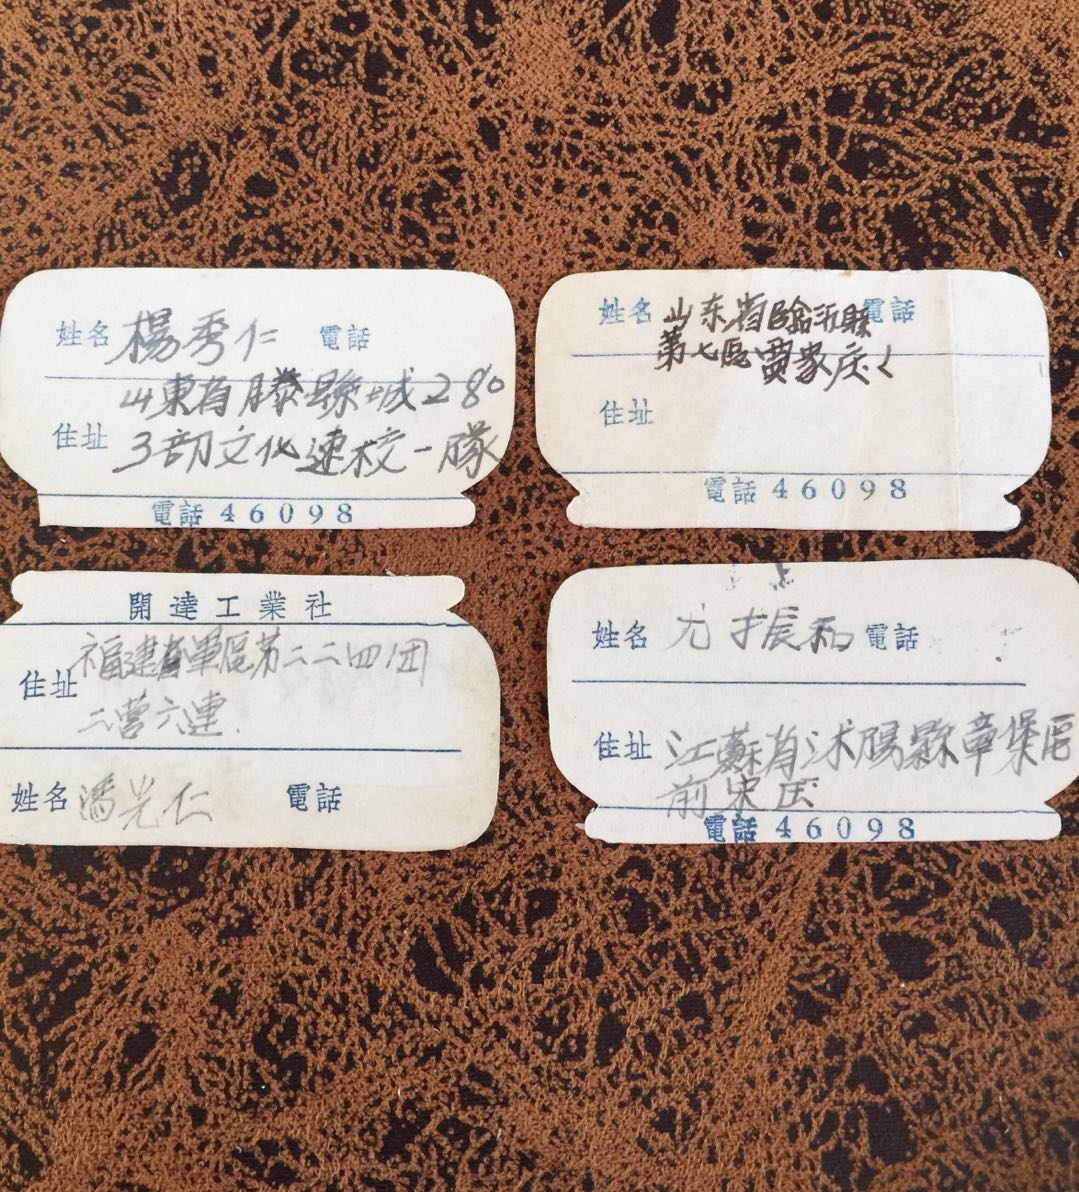 姓名 楊秀仁 電話
山東省滕縣城280
住址 3部文化速校一隊
電話 46098
姓名 山东省臨沂縣 電話
第七區賈家庄
住址
電話 46098
開達工業社
福建省軍區第二二四团
住址 二营六連.
姓名 潘光仁 電話
姓名 尤振和 電話
住址 江蘇省沭陽縣章集區
前宋庄
電話 46098